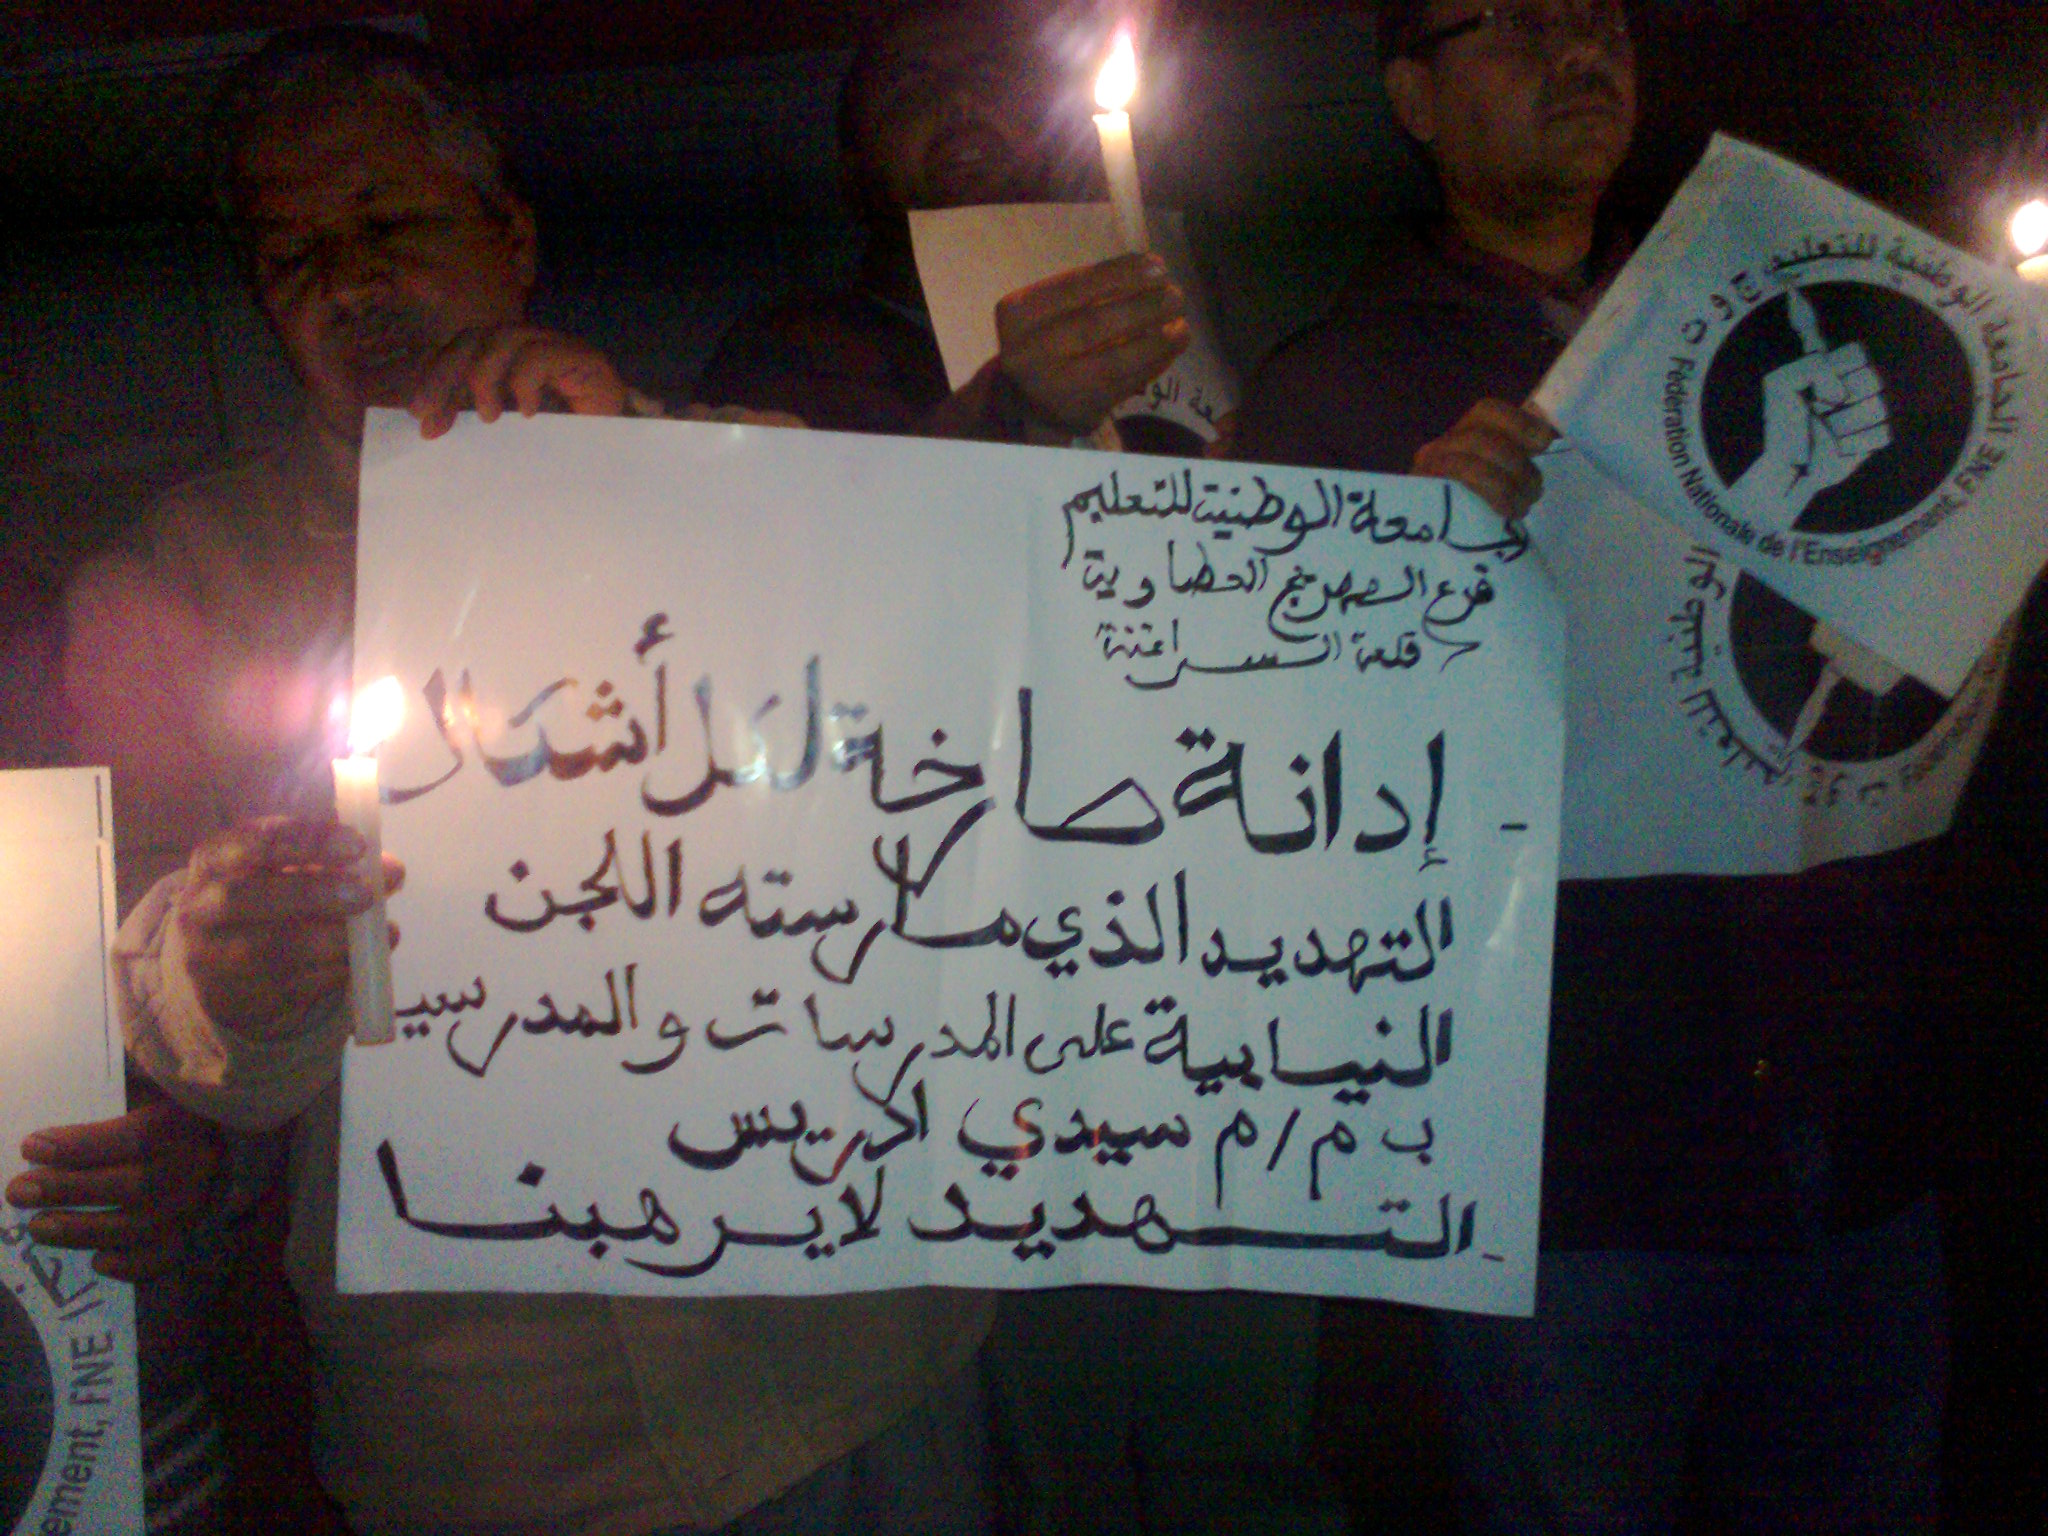 الجامعة الوطنية للتعليم
فرع
قلعة السراغنة
- إدانة صارخة لكل أشكال
التهديد الذي مارسته اللجن
النيابية على المدرسات والمدرسي
ب م/م سيدي ادريس
- التهديد لا يرهبنا
الجامعة الوطنية للتعليم ج و ت
Fédération Nationale de l'Enseignement, FNE
الوطنية للتعليم
ement, FNE